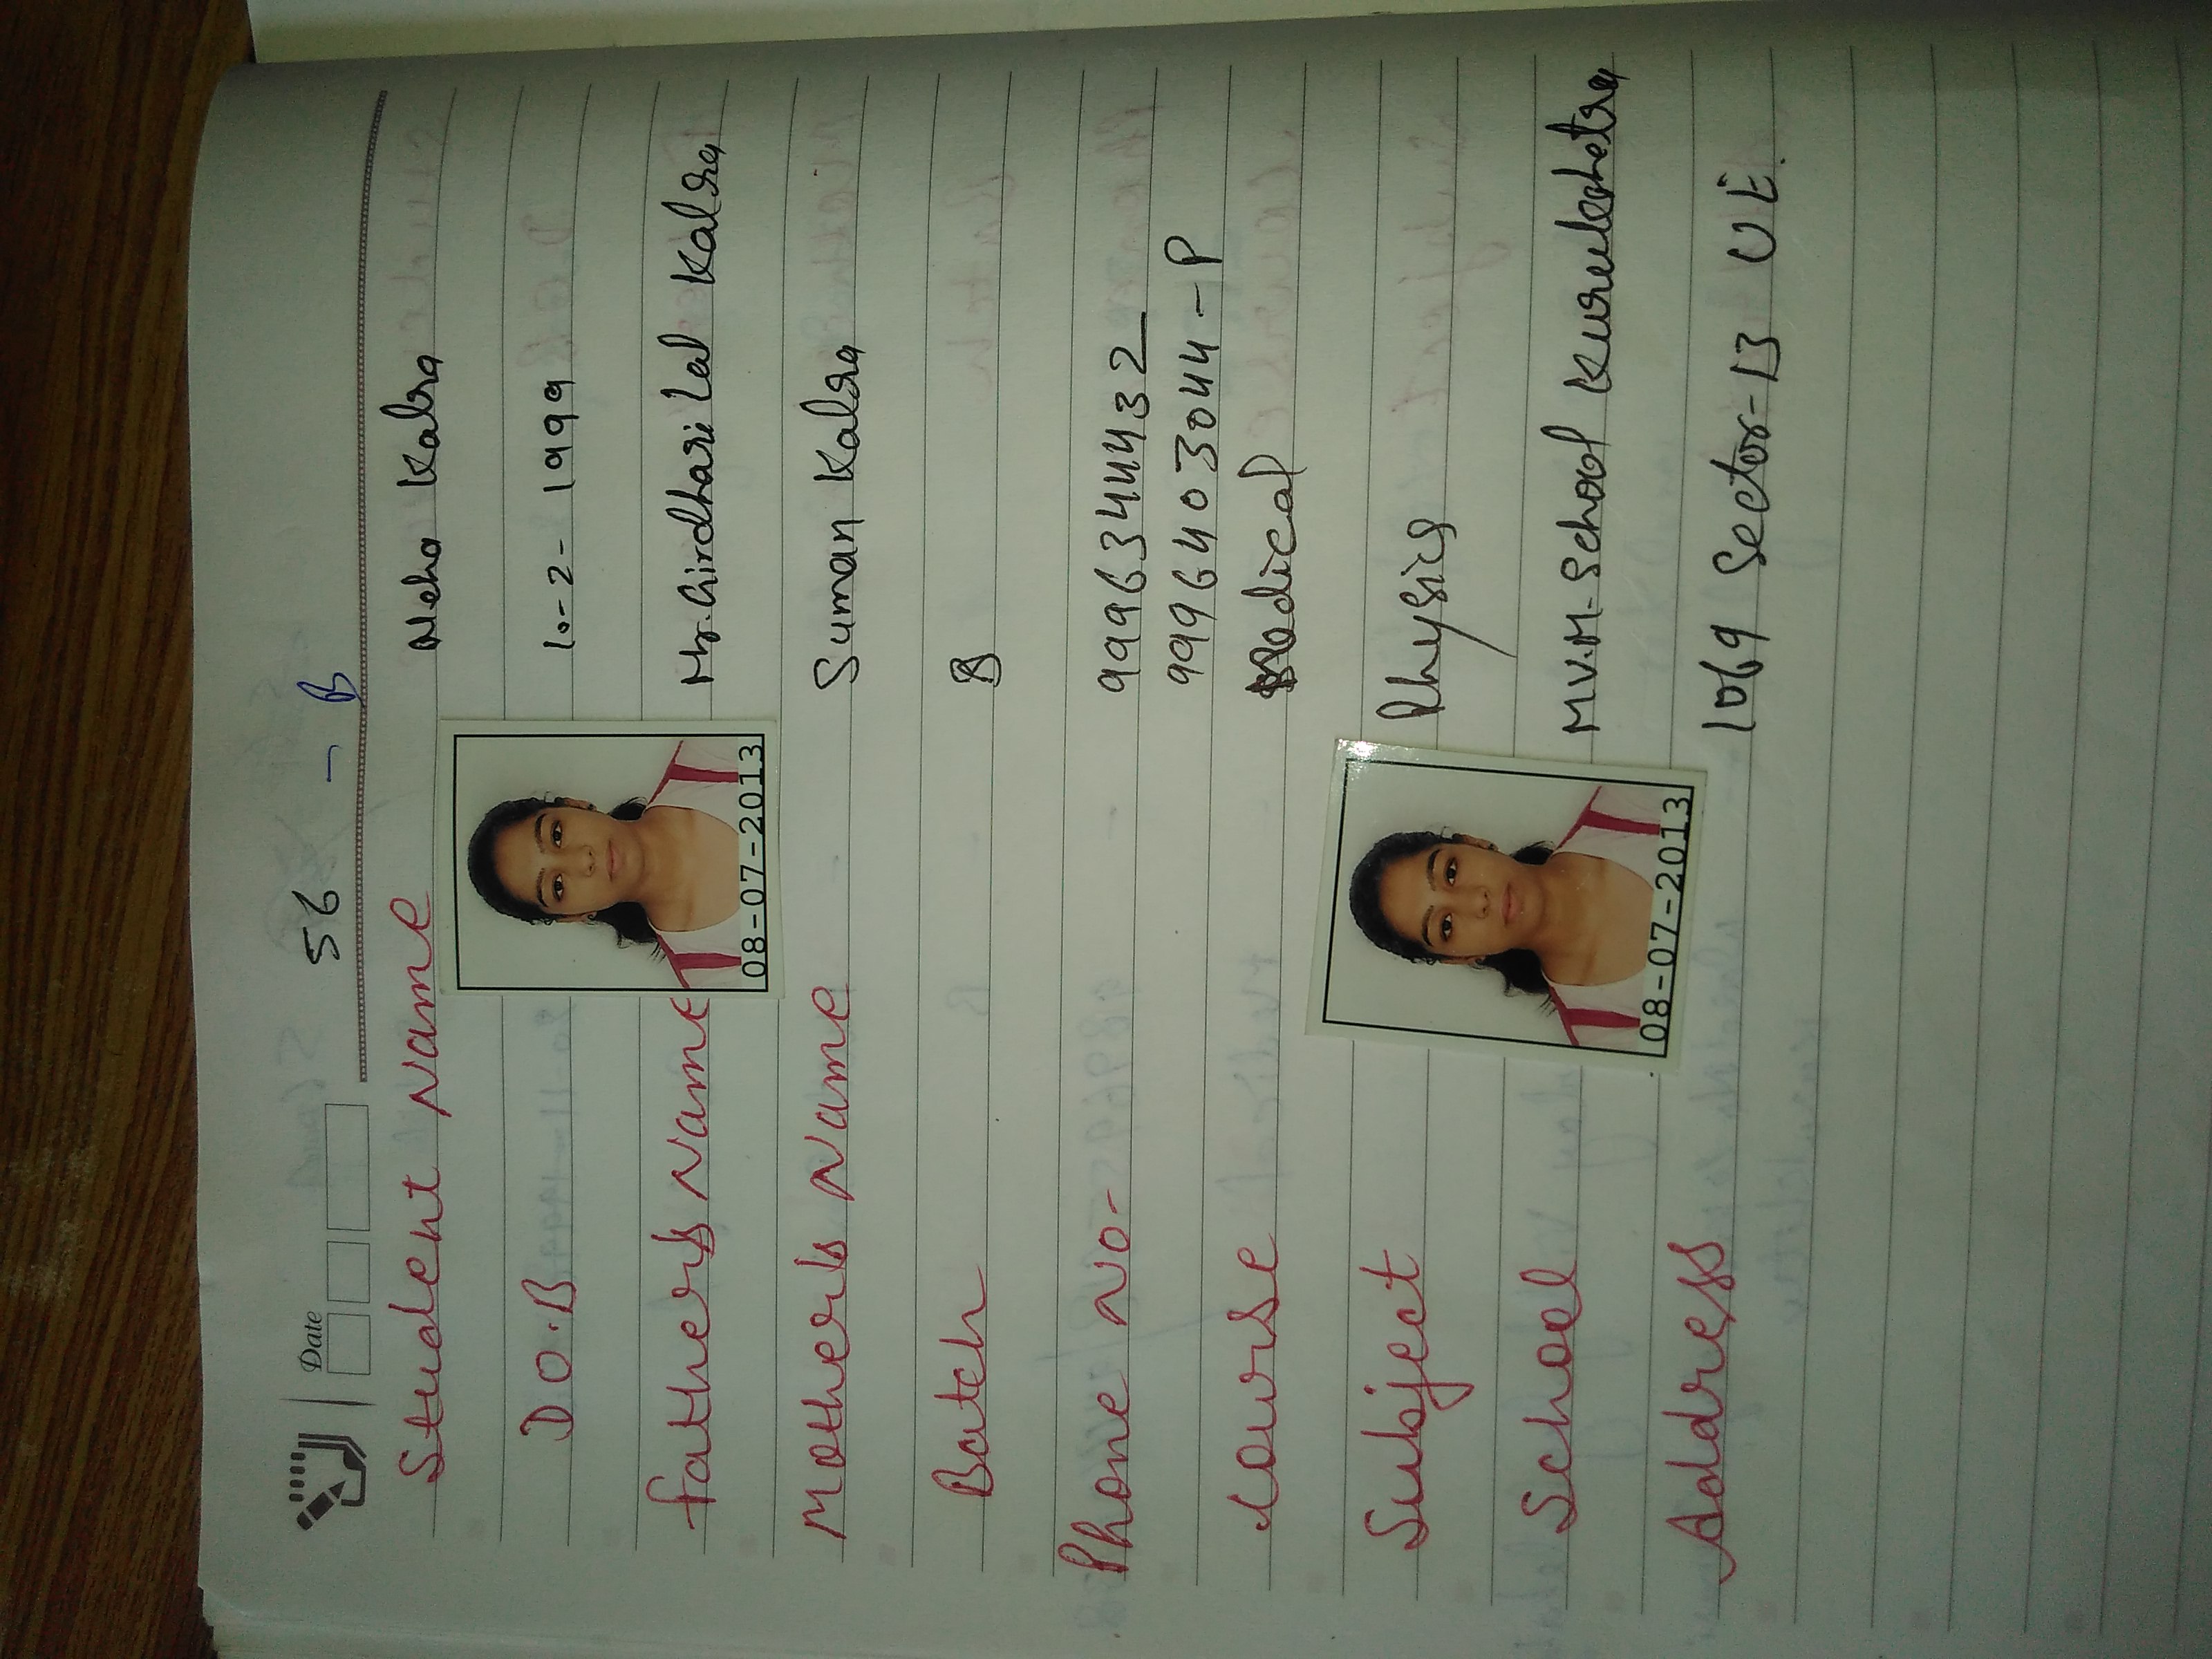 Date
56 - B
Student Name Neha Kalra
D.O.B 10-2-1999
Father's Name Mr. Girdhari Lal Kalra
08-07-2013
Mother's Name Suman Kalra
Batch B
Phone No- 9996344432
9996403044-P
Course Medical
Subject Physics
School M.V.M. School Kurukshetra
08-07-2013
Address 1069 Sector-13 U.E.